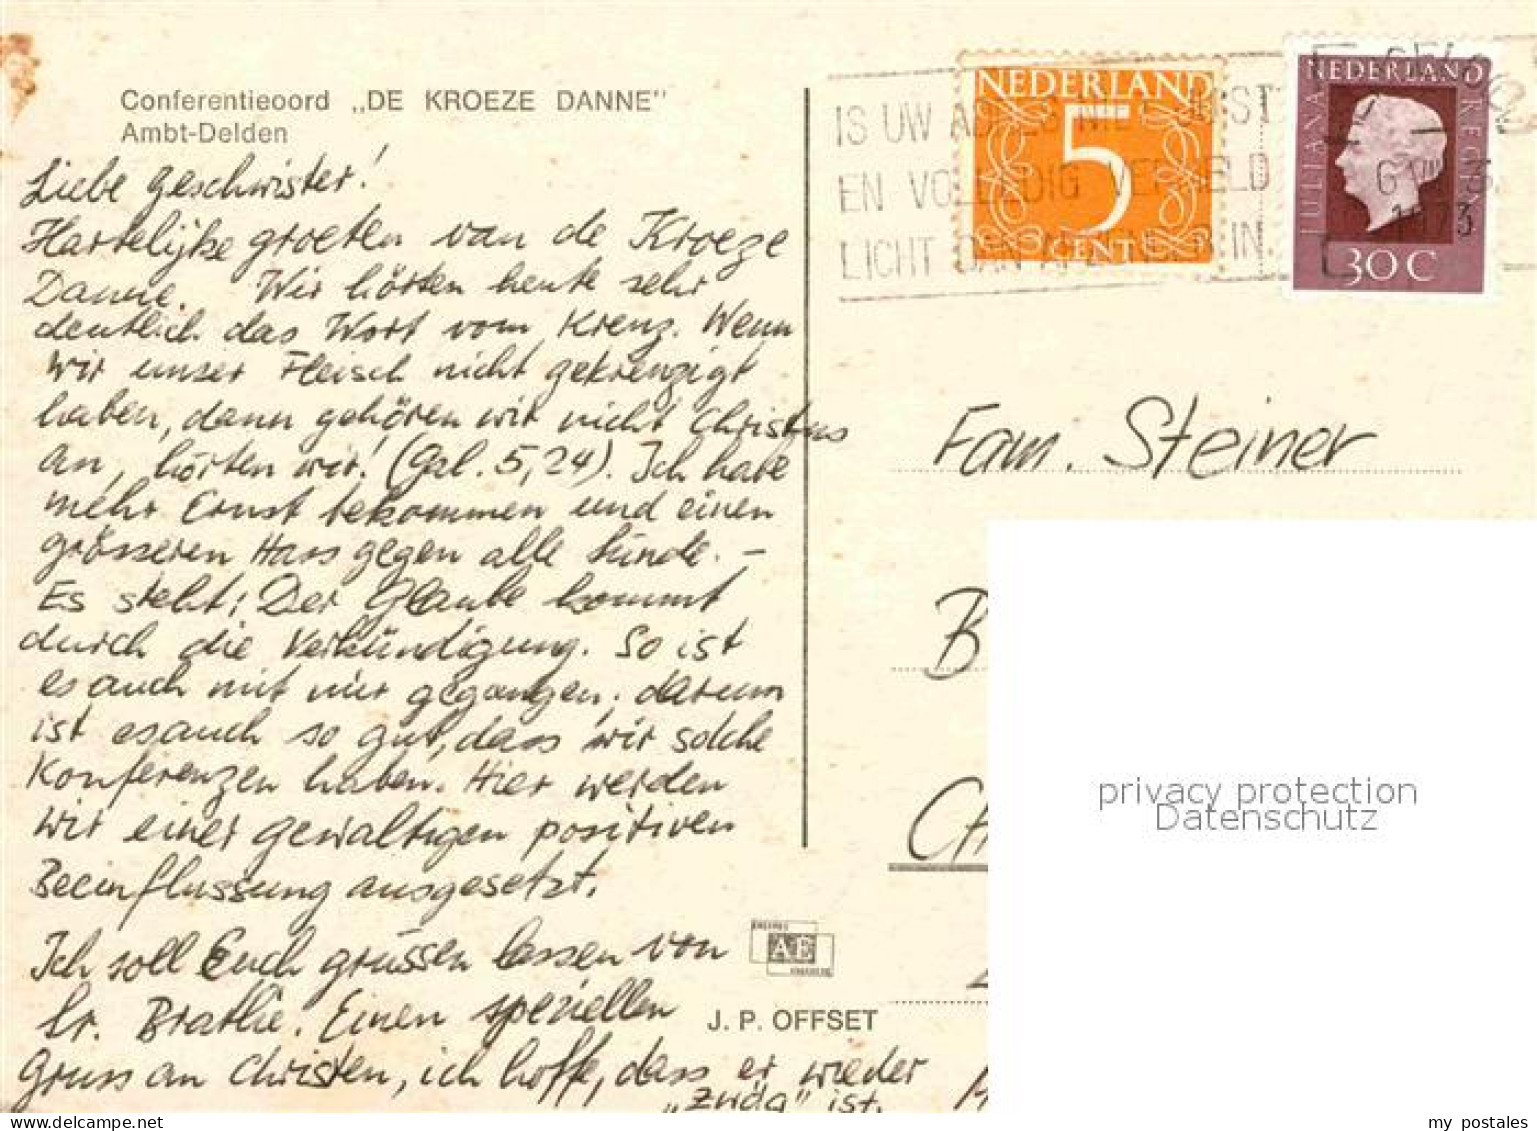 Conferentieoord „DE KROEZE DANNE”
Ambt-Delden
Liebe Geschwister!
Hartelijke groeten van de Kroeze
Danne. Wir hörten heute sehr
deutlich das Wort vom Kreuz. Wenn
wir unser Fleisch nicht gekreuzigt
haben, dann gehören wir nicht Christus
an, hörten wir! (Gal. 5,24). Ich habe
mehr Ernst bekommen und einen
grösseren Hass gegen alle Sünde. –
Es steht: Der Glaube kommt
durch die Verkündigung. So ist
es auch mit mir gegangen; darum
ist es auch so gut, dass wir solche
Konferenzen haben. Hier werden
wir einer gewaltigen positiven
Beeinflussung ausgesetzt.
Ich soll Euch grüssen lassen von
br. Brathe. Einen speziellen
Gruss an Christen, ich hoffe, dass er wieder
„zwäg” ist.
IS UW ADRES NIET JUIST
EN VOLLEDIG VERMELD
LICHT DAN AFZENDER IN.
NEDERLAND
5
CENT
NEDERLAND
JULIANA REGINA
30 C
Fam. Steiner
B
CH
privacy protection
Datenschutz
AE
J. P. OFFSET
my postales